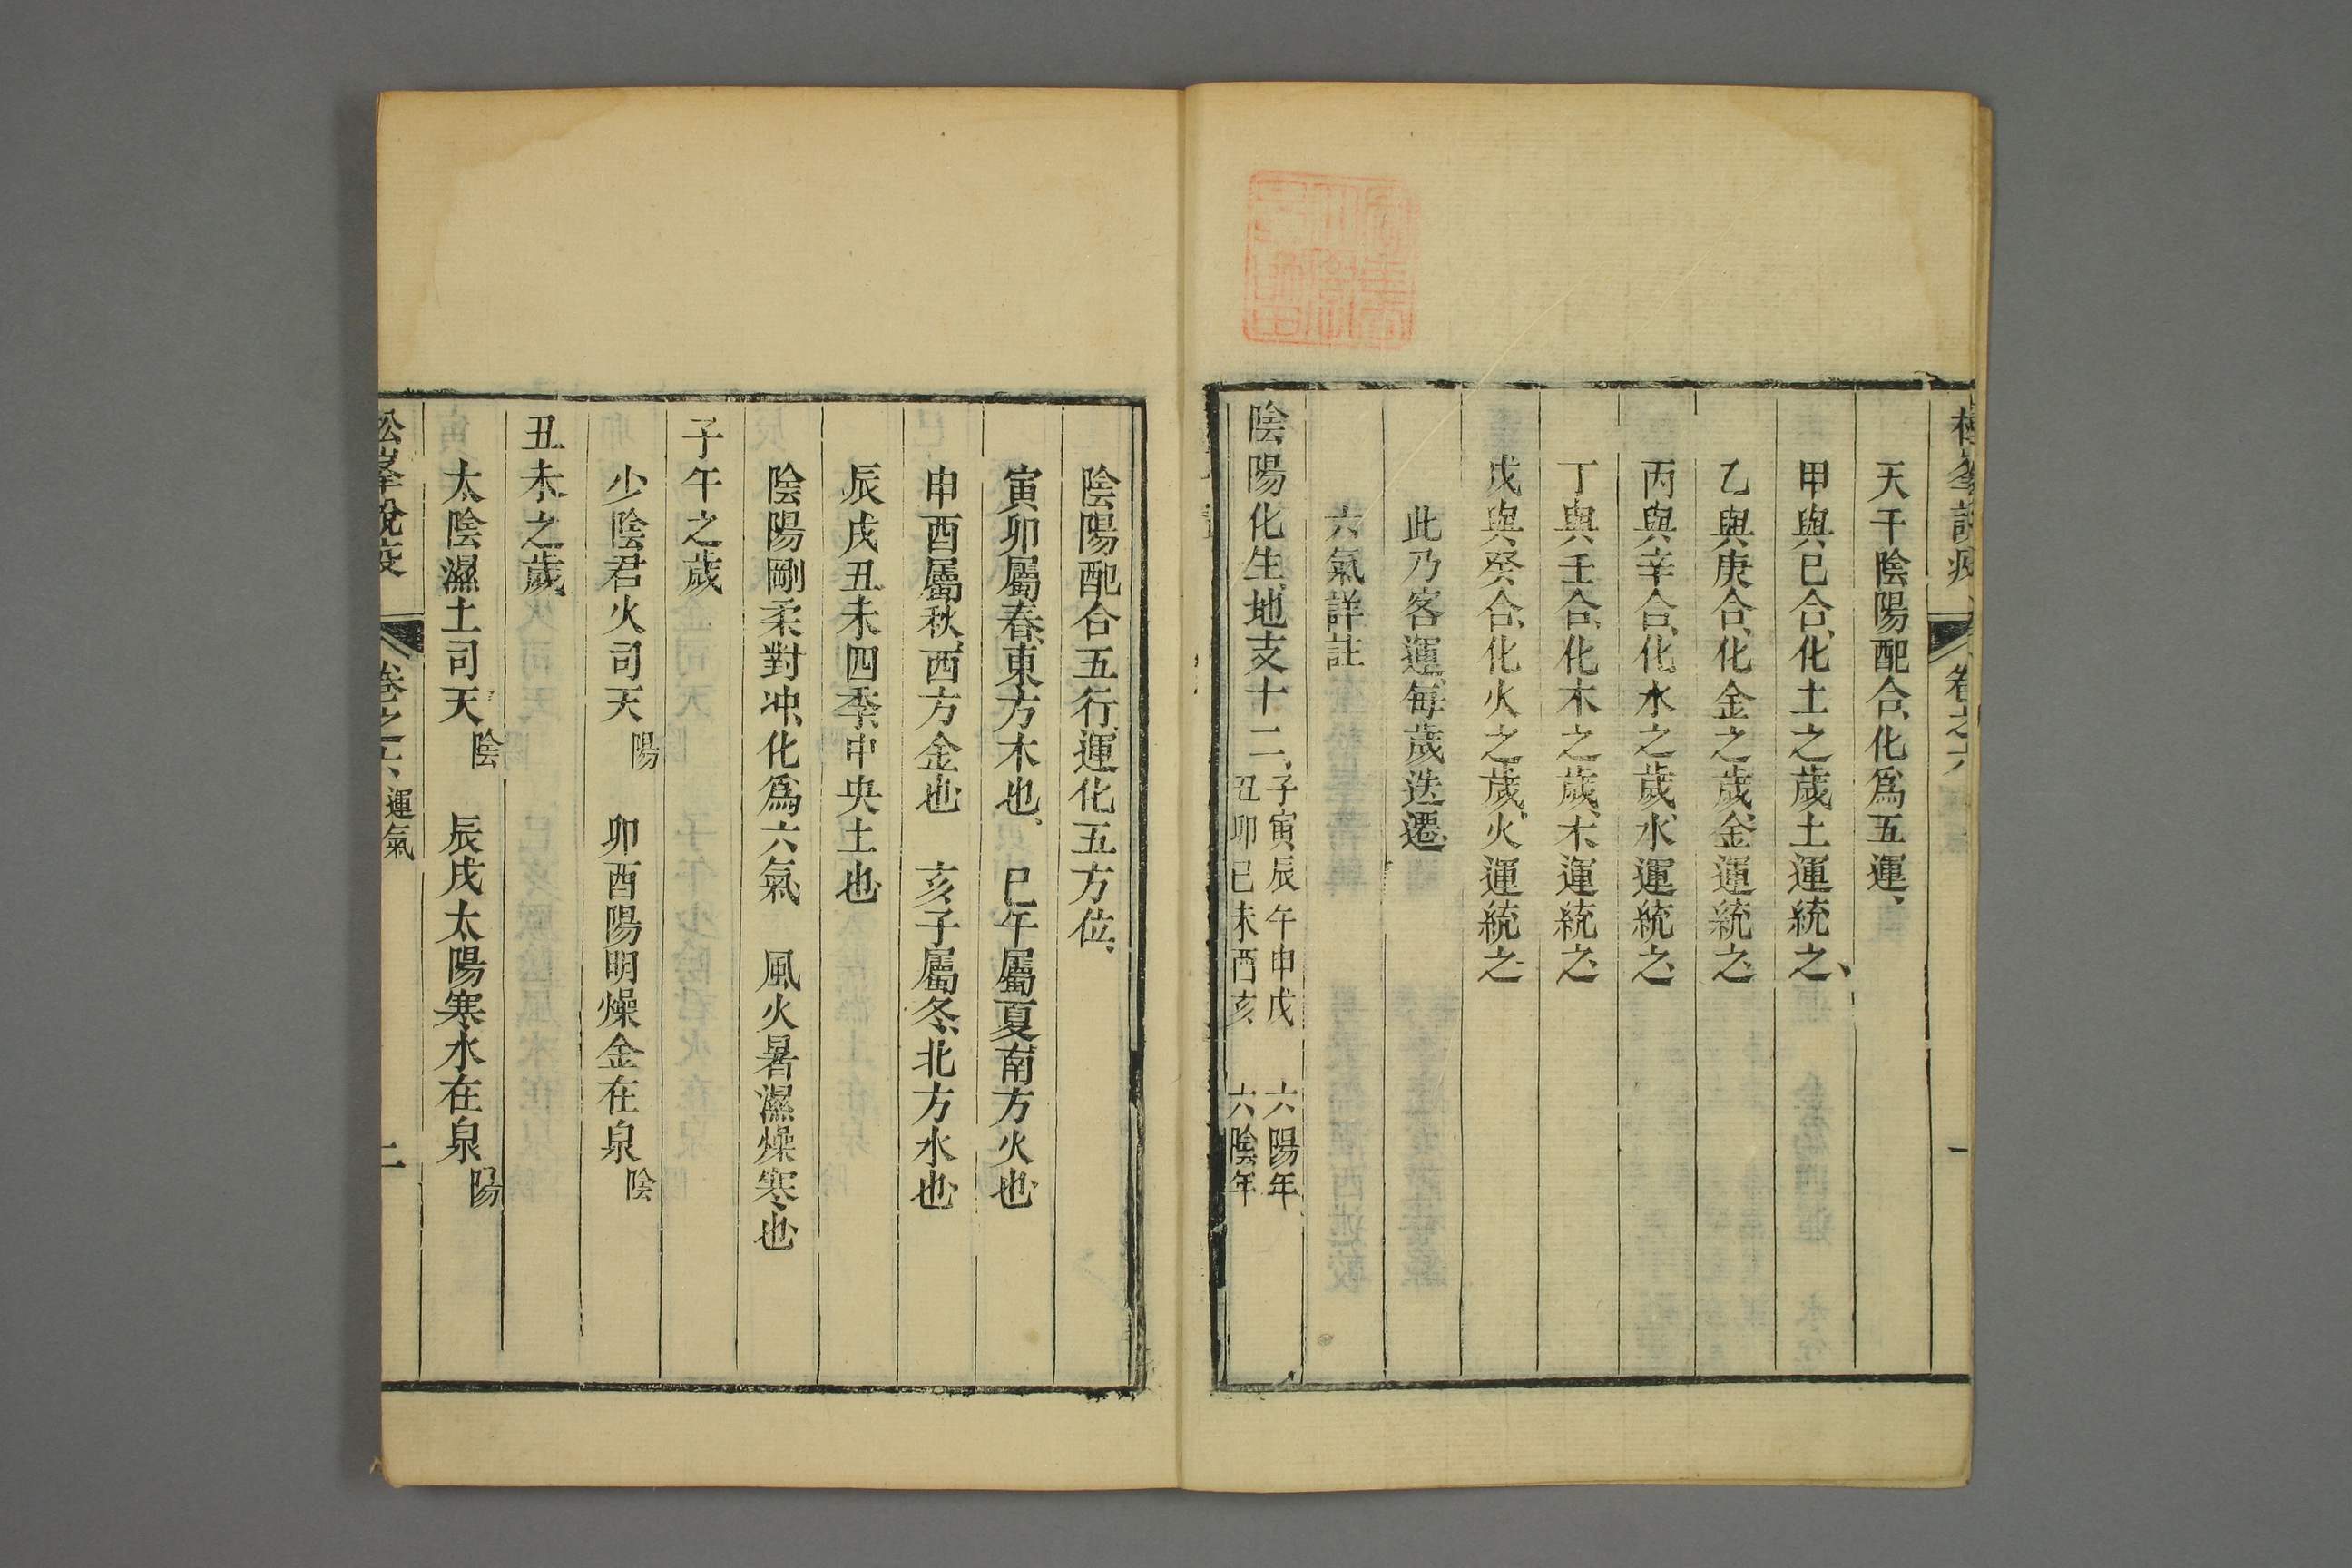 天干陰陽配合、化爲五運、
甲與己合、化土之歲、土運統之、
乙與庚合、化金之歲、金運統之、
丙與辛合、化水之歲、水運統之、
丁與壬合、化木之歲、木運統之、
戊與癸合、化火之歲、火運統之、
此乃客運、每歲迭遷、
六氣詳註
陰陽化生、地支十二、子寅辰午申戌 六陽年
丑卯巳未酉亥 六陰年
陰陽配合五行、運化五方位、
寅卯屬春、東方木也、 巳午屬夏、南方火也、
申酉屬秋、西方金也、 亥子屬冬、北方水也、
辰戌丑未四季、中央土也、
陰陽剛柔對冲、化爲六氣、 風火暑濕燥寒也、
子午之歲
少陰君火司天 陽 卯酉陽明燥金在泉 陰
丑未之歲
太陰濕土司天 陰 辰戌太陽寒水在泉 陽
松峯說疫 卷之六、運氣 二